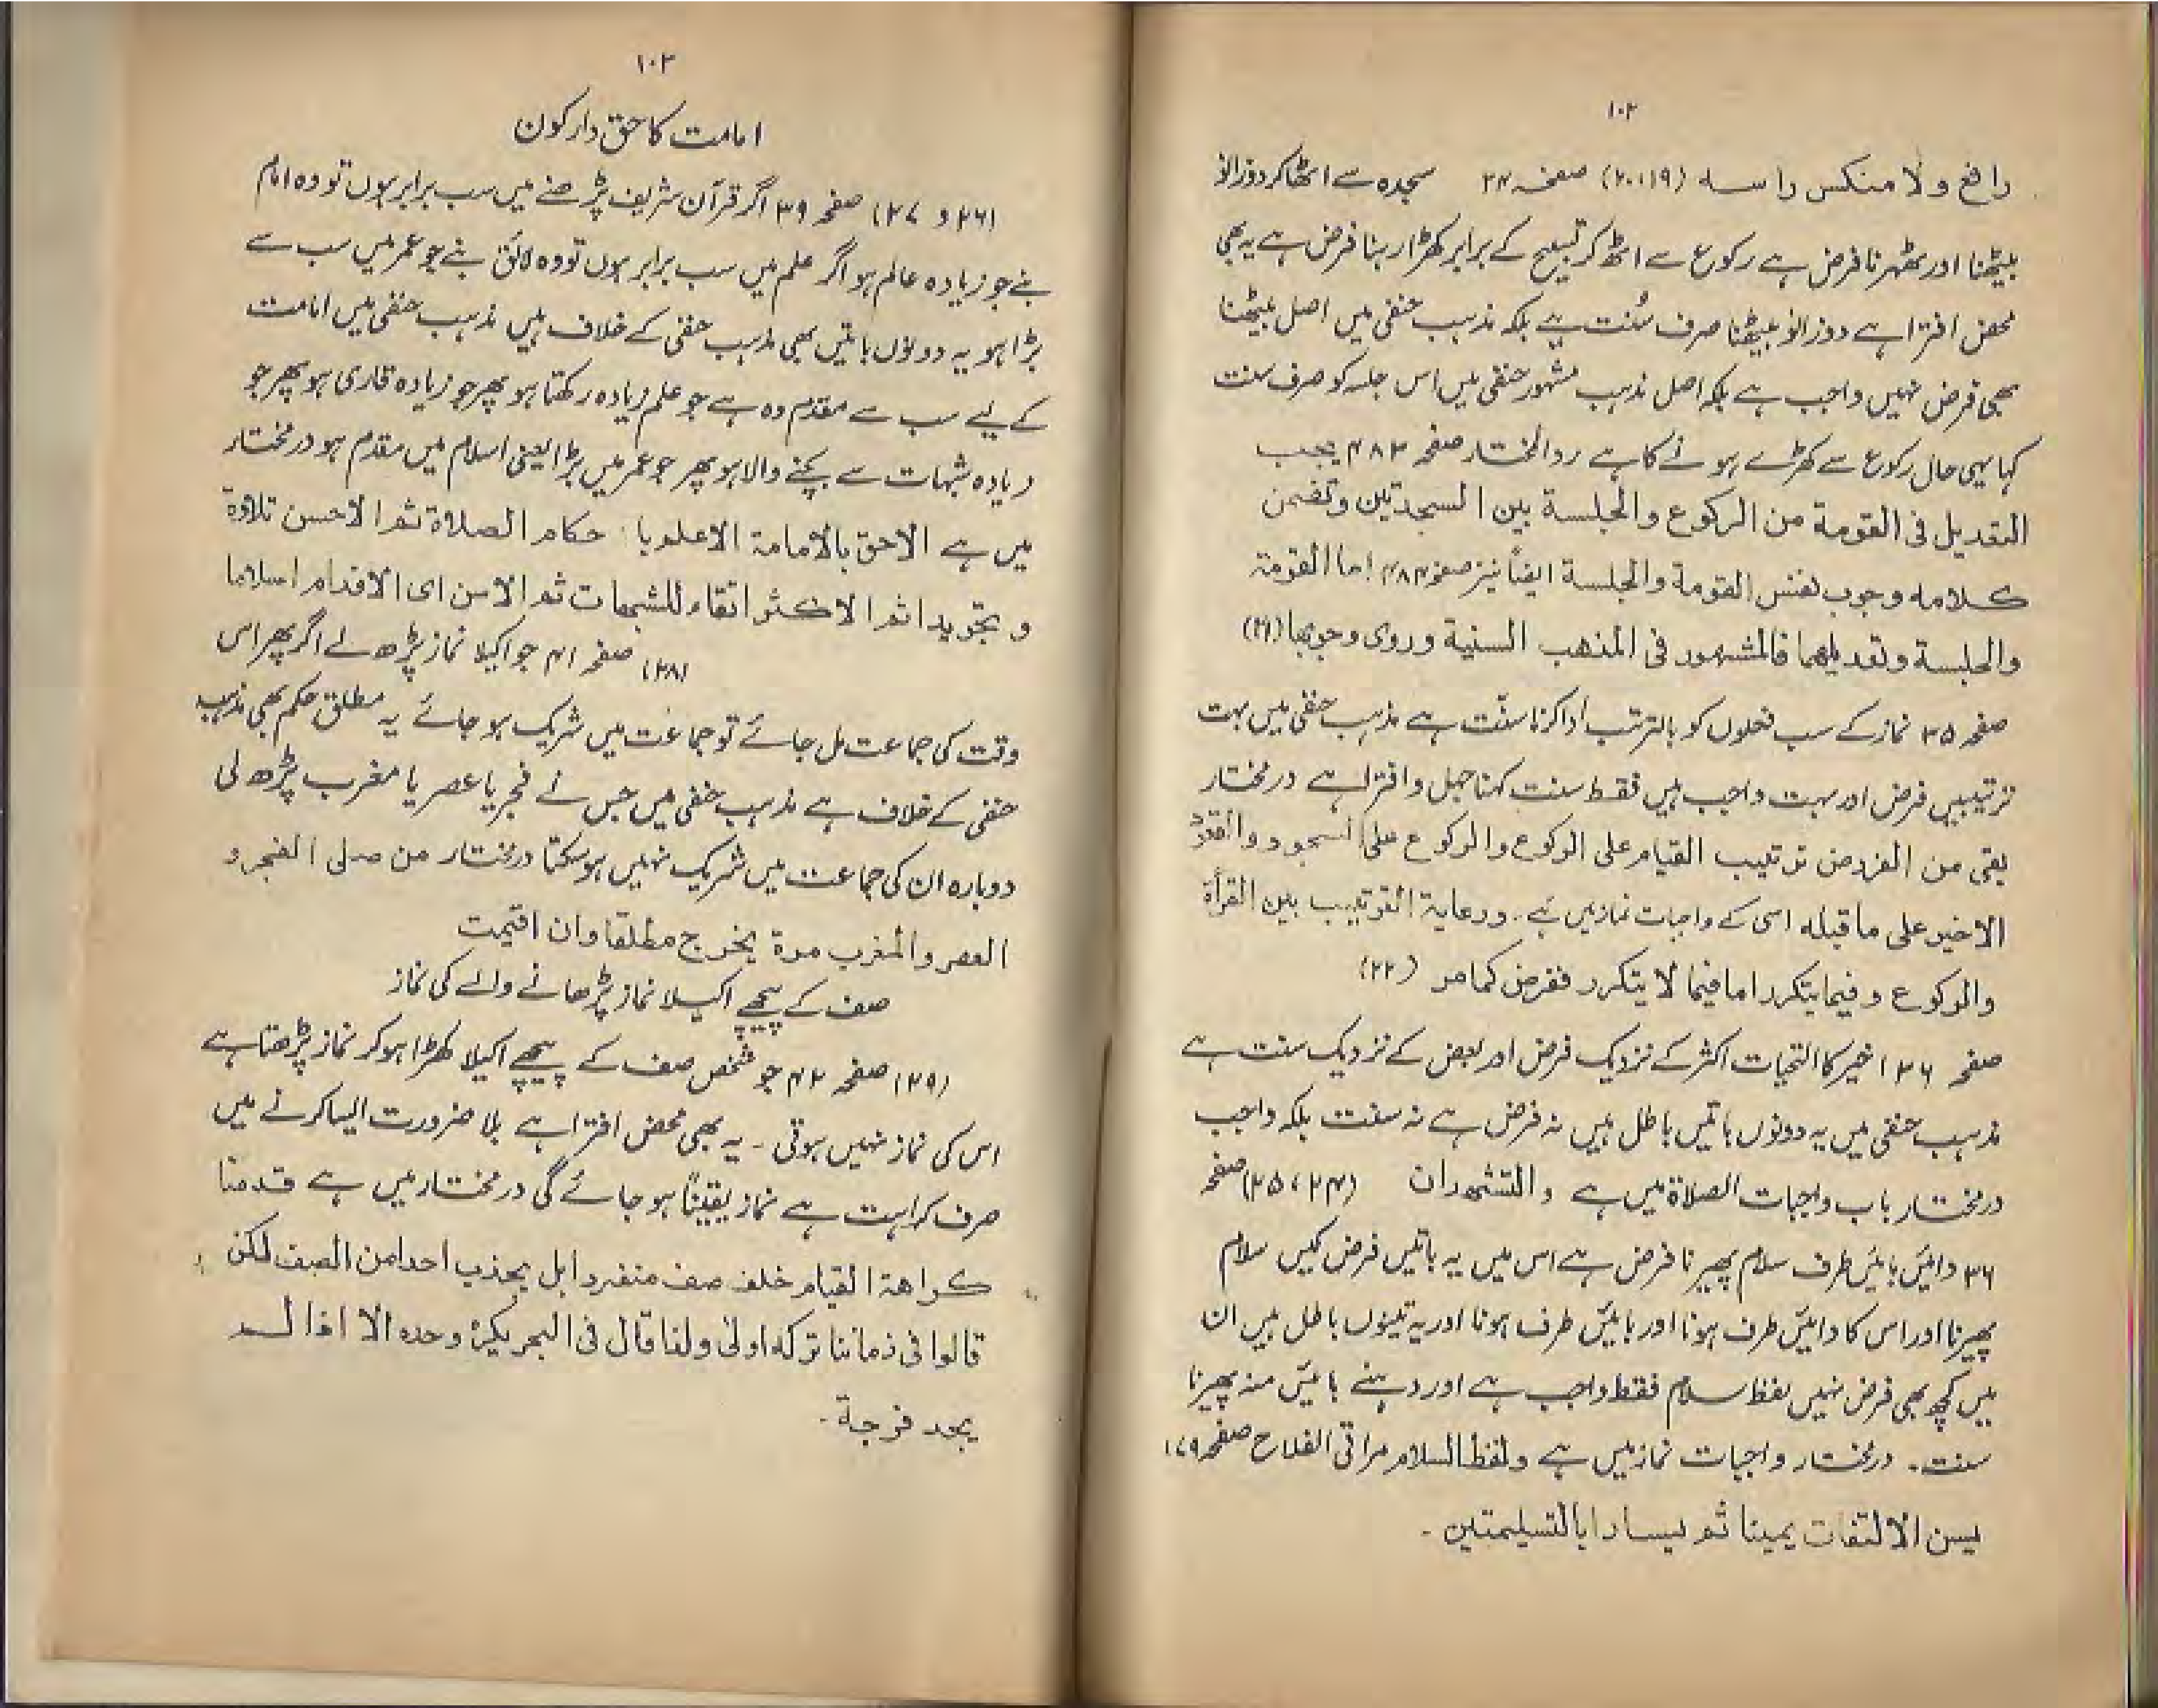 ۱۰۲
رافع ولا منکس راسہ (۲۰،۱۹) صفحہ ۳۴ سجدہ سے اٹھا کر دوزانو
بیٹھنا اور ٹھہرنا فرض ہے رکوع سے اٹھ کر تسبیح کے برابر کھڑا رہنا فرض ہے یہ بھی
محض افترا ہے دوزانو بیٹھنا صرف سُنت ہے بلکہ مذہب حنفی میں اصل بیٹھنا
بھی فرض نہیں واجب ہے بلکہ اصل مذہب مشہور حنفی میں اس جلسہ کو صرف سنت
کہا یہی حال رکوع سے کھڑے ہونے کا ہے ردالمختار صفحہ ۴۸۲ یجب
التعدیل فی القومة من الرکوع والجلسة بین السجدتین وتضمن
کلامہ وجوب نفس القومة والجلسة ایضاً نیز صفحہ ۴۸۴ اما القومة
والجلسة وتعدیلھما فالمشہور فی المذھب السنیة وروی وجوبھا (۲۱)
صفحہ ۳۵ نماز کے سب فعلوں کو بالترتیب ادا کرنا سنّت ہے مذہب حنفی میں بہت
ترتیبیں فرض اور بہت واجب ہیں فقط سنت کہنا جہل و افترا ہے درمختار
بقی من الفروض ترتیب القیام علی الرکوع والرکوع علی السجود والقعود
الاخیر علی ما قبلہ اسی کے واجبات نماز میں ہے۔ ورعایة الترتیب بین القرأة
والرکوع وفیما یتکرر اما فیما لا یتکرر ففرض کما مر (۲۲)
صفحہ ۳۶ اخیر کا التحیات اکثر کے نزدیک فرض اور بعض کے نزدیک سنت ہے
مذہب حنفی میں یہ دونوں باتیں باطل ہیں نہ فرض ہے نہ سنت بلکہ واجب
درمختار باب واجبات الصلاة میں ہے والتشھدان (۲۴، ۲۵) صفحہ
۳۶ دائیں بائیں طرف سلام پھیرنا فرض ہے اس میں یہ باتیں فرض کیں سلام
پھیرنا اور اس کا دائیں طرف ہونا اور بائیں طرف ہونا اور یہ تینوں باطل ہیں ان
میں کچھ بھی فرض نہیں لفظ سلام فقط واجب ہے اور دہنے بائیں منہ پھیرنا
سنت۔ درمختار واجبات نماز میں ہے ولفظ السلام مراقی الفلاح صفحہ ۱۷۹
یسن الالتفات یمینا ثم یسارا بالتسلیمتین۔
۱۰۳
امامت کا حق دار کون
(۲۶ و ۲۷) صفحہ ۳۹ اگر قرآن شریف پڑھنے میں سب برابر ہوں تو وہ امام
بنے جو زیادہ عالم ہو اگر علم میں سب برابر ہوں تو وہ لائق بنے جو عمر میں سب سے
بڑا ہو یہ دونوں باتیں بھی مذہب حنفی کے خلاف ہیں مذہب حنفی میں امامت
کے لیے سب سے مقدم وہ ہے جو علم زیادہ رکھتا ہو پھر جو زیادہ قاری ہو پھر جو
زیادہ شبہات سے بچنے والا ہو پھر جو عمر میں بڑا یعنی اسلام میں مقدم ہو درمختار
میں ہے الاحق بالامامة الاعلم باحکام الصلاة ثم الاحسن تلاوة
و تجویدا ثم الاکثر اتقاء للشبھات ثم الاسن ای الاقدم اسلاما
(۲۸) صفحہ ۴۱ جو اکیلا نماز پڑھ لے اگر پھر اس
وقت کی جماعت مل جائے تو جماعت میں شریک ہو جائے یہ مطلق حکم بھی مذہب
حنفی کے خلاف ہے مذہب حنفی میں جس نے فجر یا عصر یا مغرب پڑھ لی
دوبارہ ان کی جماعت میں شریک نہیں ہو سکتا درمختار من صلی الفجر و
العصر والمغرب مرة یخرج مطلقا وان اقیمت
صف کے پیچھے اکیلا نماز پڑھانے والے کی نماز
(۲۹) صفحہ ۴۲ جو شخص صف کے پیچھے اکیلا کھڑا ہو کر نماز پڑھتا ہے
اس کی نماز نہیں ہوتی۔ یہ بھی محض افترا ہے بلا ضرورت ایسا کرنے میں
صرف کراہت ہے نماز یقیناً ہو جائے گی درمختار میں ہے قدمنا
کراھة القیام خلف صف منفردا بل یجذب احدا من الصف لکن
قالوا فی زماننا ترکہ اولی ولذا قال فی البحر یکرہ وحدہ الا اذا لم
یجد فرجة۔